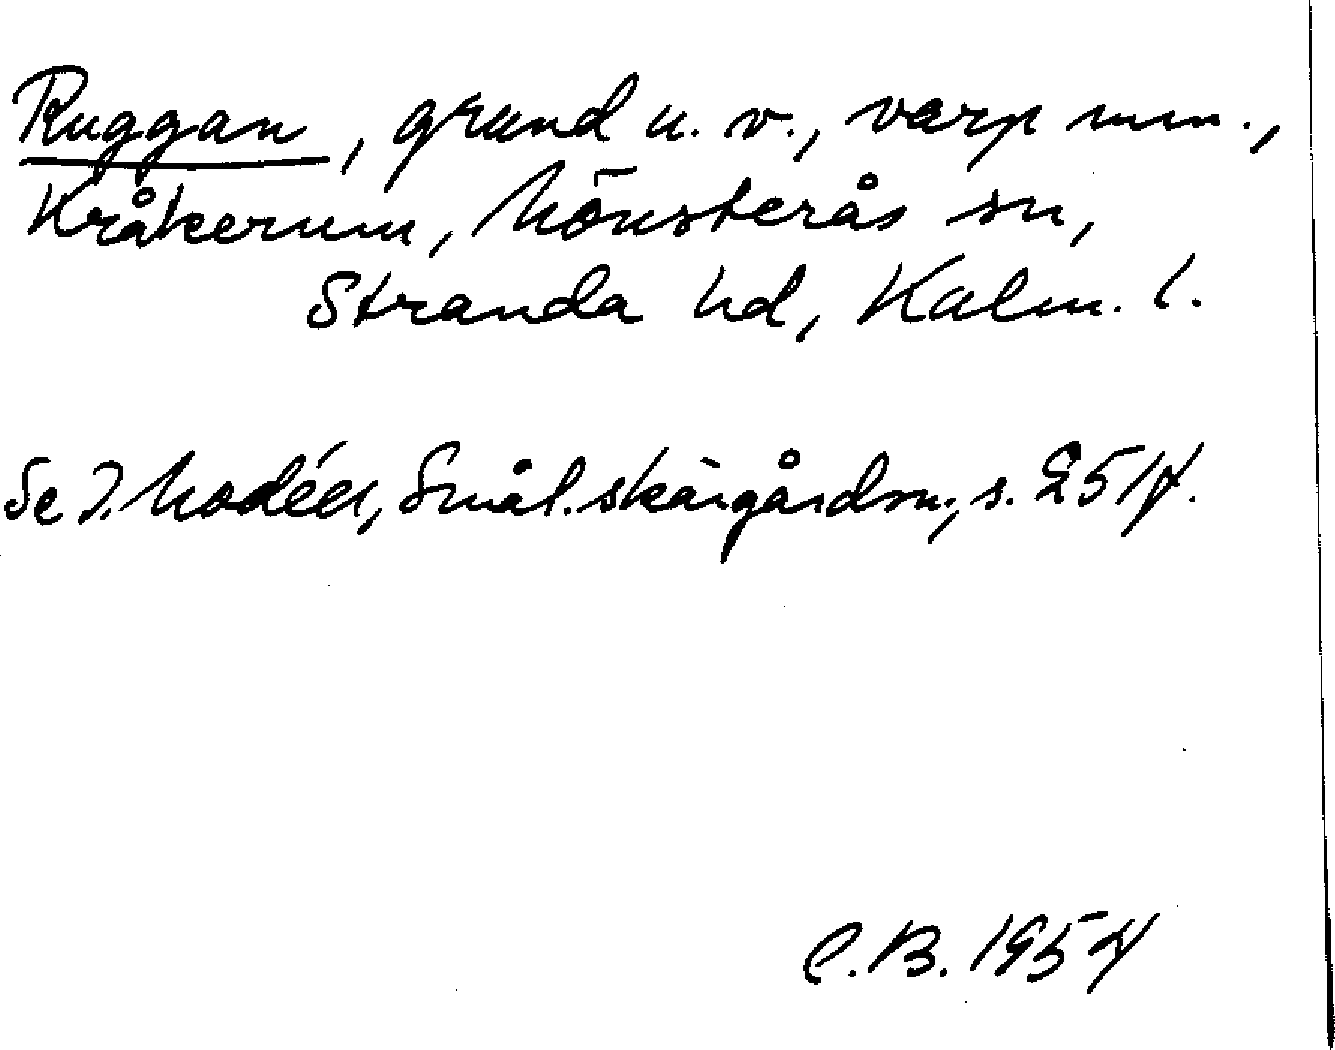 Ruggan, grund u. v., varp mm.,
Kråkerum, Mönsterås sn,
Stranda hd, Kalm. l.
Se I. Modéer, Smål. skärgårdsn., s. 25 f.
C.B. 1954